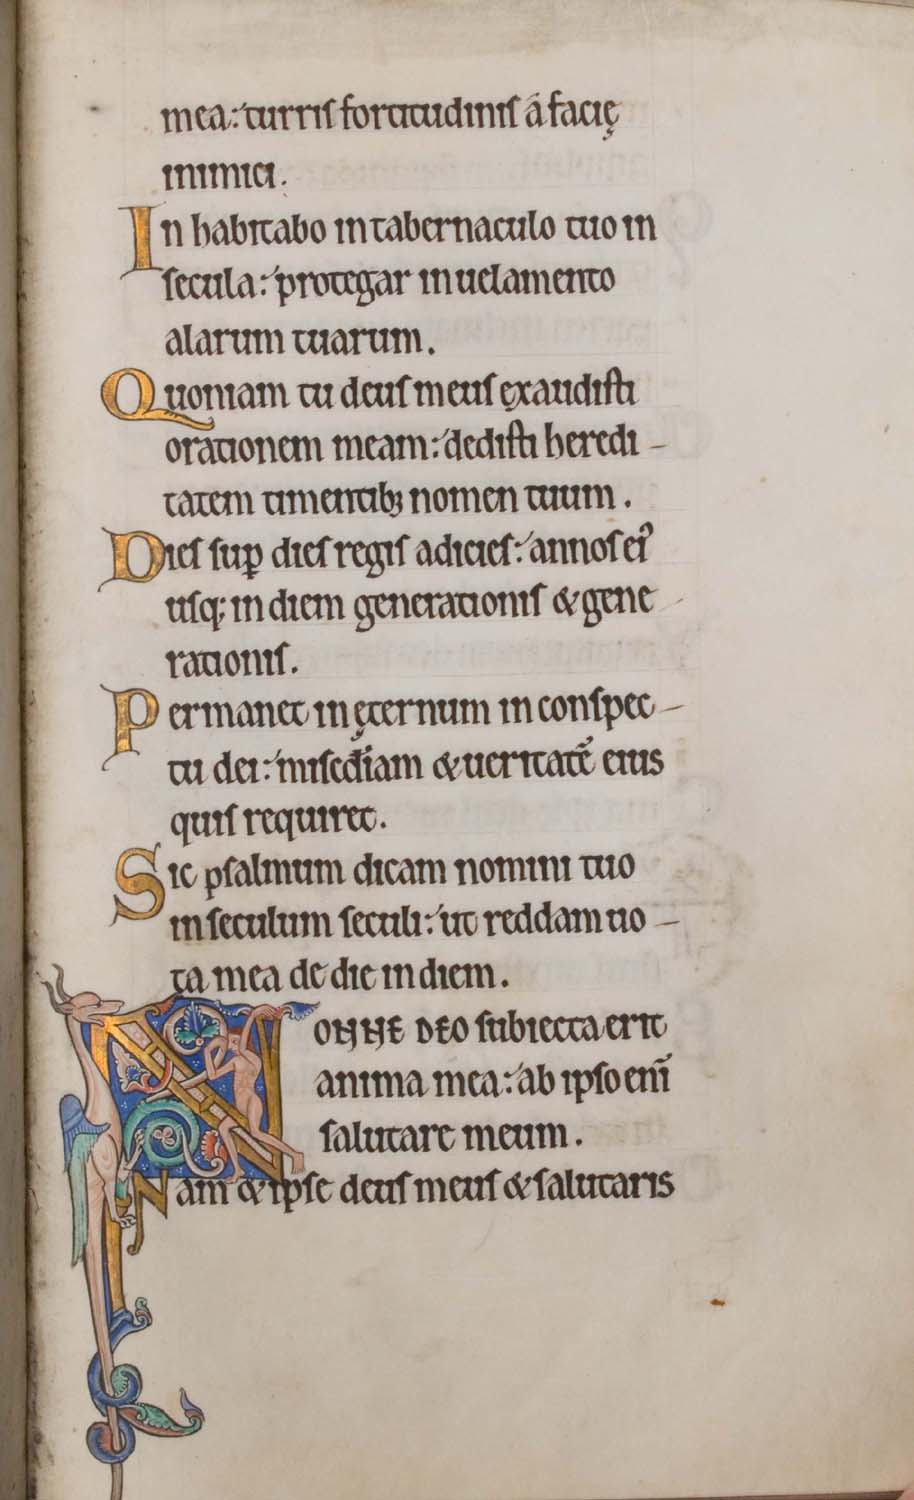 mea: turris fortitudinis a facię
inimici.
In habitabo in tabernaculo tuo in
secula: protegar in uelamento
alarum tuarum.
Quoniam tu deus meus exaudisti
orationem meam: dedisti heredi-
tatem timentib; nomen tuum.
Dies sup̱ dies regis adicies: annos ei᾽
usq; in diem generationis & gene-
rationis.
Permanet in ęternum in conspec-
tu dei: misc̄diam & ueritatē eius
quis requiret.
Sic psalmum dicam nomini tuo
in seculum seculi: ut reddam uo-
ta mea de die in diem.
NONNE DEO subiecta erit
anima mea: ab ipso eni̅
salutare meum.
Nam & ipse deus meus & salutaris